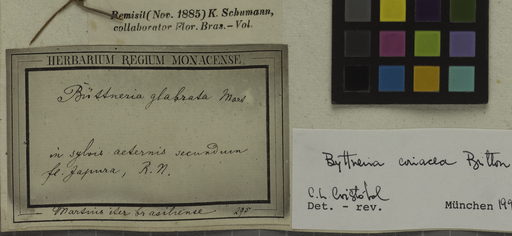 Remisit (Nov. 1885) K. Schumann,
collaborator Flor. Bras.- Vol.
HERBARIUM REGIUM MONACENSE.
Büttneria glabrata Mart
in sylvis aeternis secundum
fl. Japura, R. N.
Martius iter brasiliense
Byttneria coriacea Britton
C. L. Cristóbal
Det. - rev. München 199